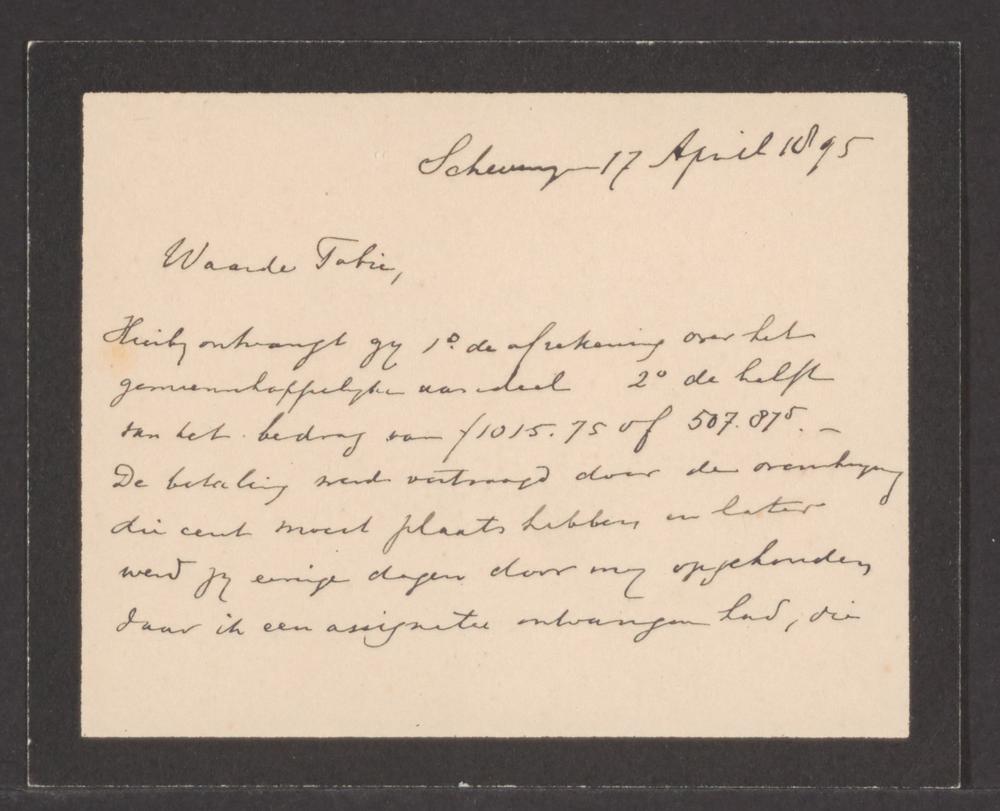 Scheveningen 17 April 1895
Waarde Tobie,
Hierbij ontvangt gij 1º. de afrekening over het
gemeenschappelijke aandeel 2º de helft
van het bedrag van f 1015.75 of 507.875. –
De betaling werd vertraagd door de overschrijving
die eerst moest plaats hebben, en later
werd zij eenige dagen door mij opgehouden,
daar ik een assignatie ontvangen had, die